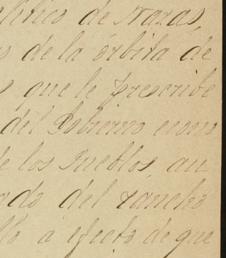 lítico de Nazas,
de la órbita de
que le prescribe
del Gobierno como
de los Pueblos, au
ado del rancho
lló á efecto de que